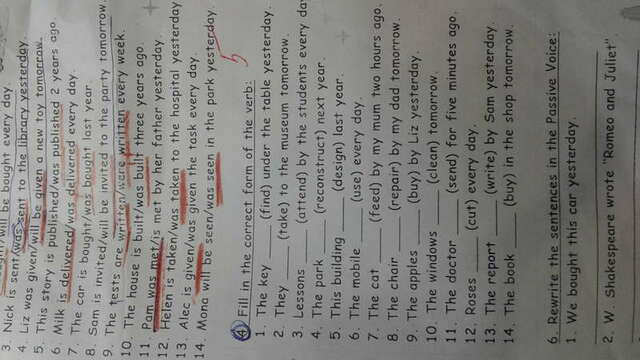 /will be bought every day.
3. Nick is sent/was sent to the library yesterday.
4. Liz was given/will be given a new toy tomorrow.
5. This story is published/was published 2 years ago.
6. Milk is delivered/was delivered every day.
7. The car is bought/was bought last year.
8. Sam is invited/will be invited to the party tomorrow.
9. The tests are written/were written every week.
10. The house is built/was built three years ago.
11. Pam was met/is met by her father yesterday.
12. Helen is taken/was taken to the hospital yesterday
13. Alec is given/was given the task every day.
14. Mona will be seen/was seen in the park yesterday.
5
4 Fill in the correct form of the verb:
1. The key ____ (find) under the table yesterday.
2. They ____ (take) to the museum tomorrow.
3. Lessons ____ (attend) by the students every da
4. The park ____ (reconstruct) next year.
5. This building ____ (design) last year.
6. The mobile ____ (use) every day.
7. The cat ____ (feed) by my mum two hours ago.
8. The chair ____ (repair) by my dad tomorrow.
9. The apples ____ (buy) by Liz yesterday.
10. The windows ____ (clean) tomorrow.
11. The doctor ____ (send) for five minutes ago.
12. Roses ____ (cut) every day.
13. The report ____ (write) by Sam yesterday.
14. The book ____ (buy) in the shop tomorrow.
6. Rewrite the sentences in the Passive Voice:
1. We bought this car yesterday.
2. W. Shakespeare wrote "Romeo and Juliet".